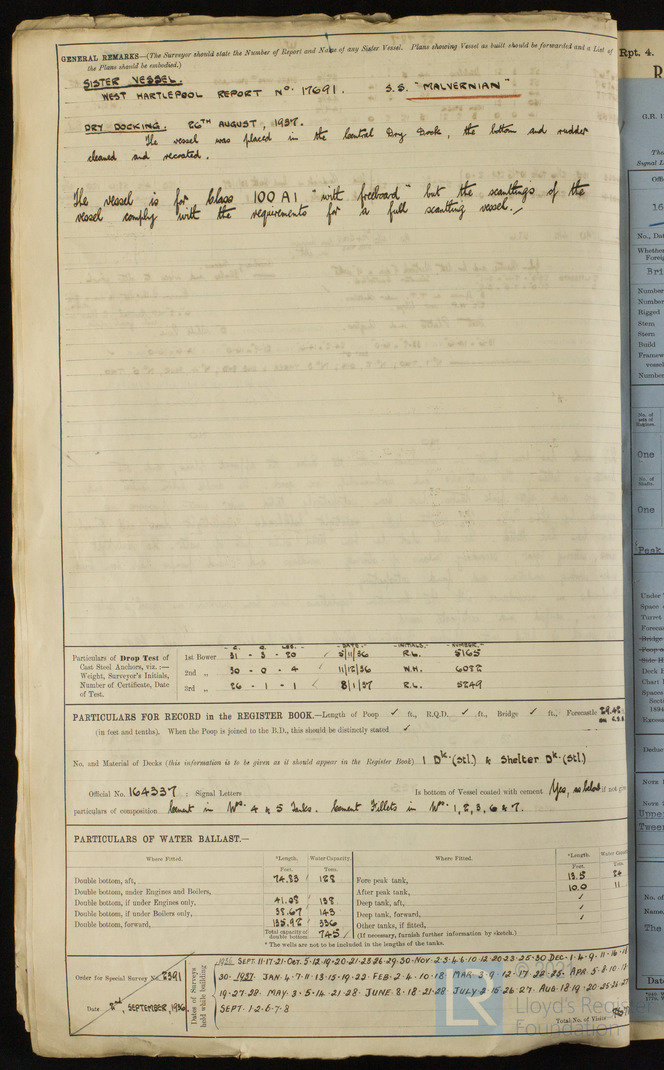 GENERAL REMARKS—(The Surveyor should state the Number of Report and Name of any Sister Vessel. Plans showing Vessel as built should be forwarded and a List of
the Plans should be embodied.)
SISTER VESSEL.
WEST HARTLEPOOL REPORT No. 17691. S.S. "MALVERNIAN"
DRY DOCKING. 26TH AUGUST, 1937.
The vessel was placed in the Central Dry Dock, the bottom and rudder
cleaned and recoated.
The vessel is for Class 100 A1 "with freeboard" but the scantlings of the
vessel comply with the requirements for a full scantling vessel.
Particulars of Drop Test of
Cast Steel Anchors, viz.:—
Weight, Surveyor's Initials,
Number of Certificate, Date
of Test.
C. Q. LBS. DATE INITIALS. NUMBER.
1st Bower 31 - 3 - 20 5/11/36 R.L. 5165
2nd „ 30 - 0 - 4 11/12/36 W.H. 6022
3rd „ 26 - 1 - 1 8/1/37 R.L. 5249
PARTICULARS FOR RECORD in the REGISTER BOOK.—Length of Poop ✓ ft., R.Q.D. ✓ ft., Bridge ✓ ft., Forecastle 29.42
(in feet and tenths). When the Poop is joined to the B.D., this should be distinctly stated ✓
No. and Material of Decks (this information is to be given as it should appear in the Register Book) 1 Dk. (Stl.) & Shelter Dk. (Stl)
Official No. 164337 ; Signal Letters Is bottom of Vessel coated with cement Yes, as below if not give
particulars of composition Cement in Nos. 4 & 5 Tanks. Cement Fillets in Nos. 1, 2, 3, 6 & 7.
PARTICULARS OF WATER BALLAST.—
Where Fitted. *Length. Water Capacity. Where Fitted. *Length. Water
Feet. Tons. Feet. Tons
Double bottom, aft, 74.83 128 Fore peak tank, 13.5 84
Double bottom, under Engines and Boilers, After peak tank, 10.0 11
Double bottom, if under Engines only, 41.08 138 Deep tank, aft, ✓
Double bottom, if under Boilers only, 38.67 143 Deep tank, forward, ✓
Double bottom, forward, 135.92 336 Other tanks, if fitted, ✓
Total capacity of double bottom 745 (If necessary, furnish further information by sketch.)
* The wells are not to be included in the lengths of the tanks.
Order for Special Survey No. 2391
Date 2nd, SEPTEMBER, 1936
Dates of Surveys held while building
1936 SEPT. 11-17-21. OCT. 5-12-19-20-21-28-26-29-30. NOV. 2-3-4-6-10-12-20-23-25-30 DEC. 1-4-9-11-16-18
30. 1937. JAN. 4-7-8-13-15-19-22. FEB. 2-4-10-18 MAR. 3-9-12-17-22-25. APR. 5-8-10-17
19-27-28. MAY. 3-5-14-21-28. JUNE. 8-18-21-28 JULY 2-15-26-27. AUG. 18-19-20-25-26-27
SEPT. 1-2-6-7-8
Total No. of Visits
© 2021
LR
Lloyd's Register
Foundation
Rpt. 4.
R
G.R. 1
Signal L
Offi
16
No., Dat
Whether
Foreig
Bri
Number
Number
Rigged
Stem
Stern
Build
Framew
vessel
Number
No. of sets of Engines.
One
No. of Shafts.
One
Peak
Under
Space
Turret
Foreca
Bridge
Poop
Side H
Deck H
Chart
Spaces
Secti
1894
Excess
Deduc
Upper
Tween
No. of
The
Date